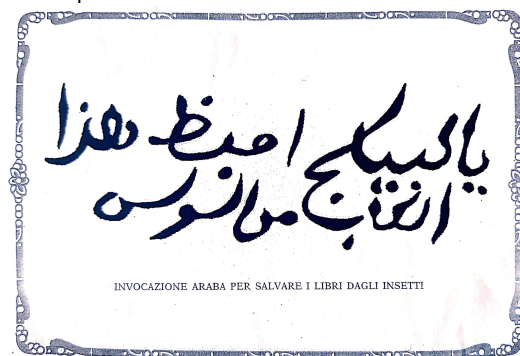 يا كبيكج احفظ هذا
الكتاب من السوس
INVOCAZIONE ARABA PER SALVARE I LIBRI DAGLI INSETTI